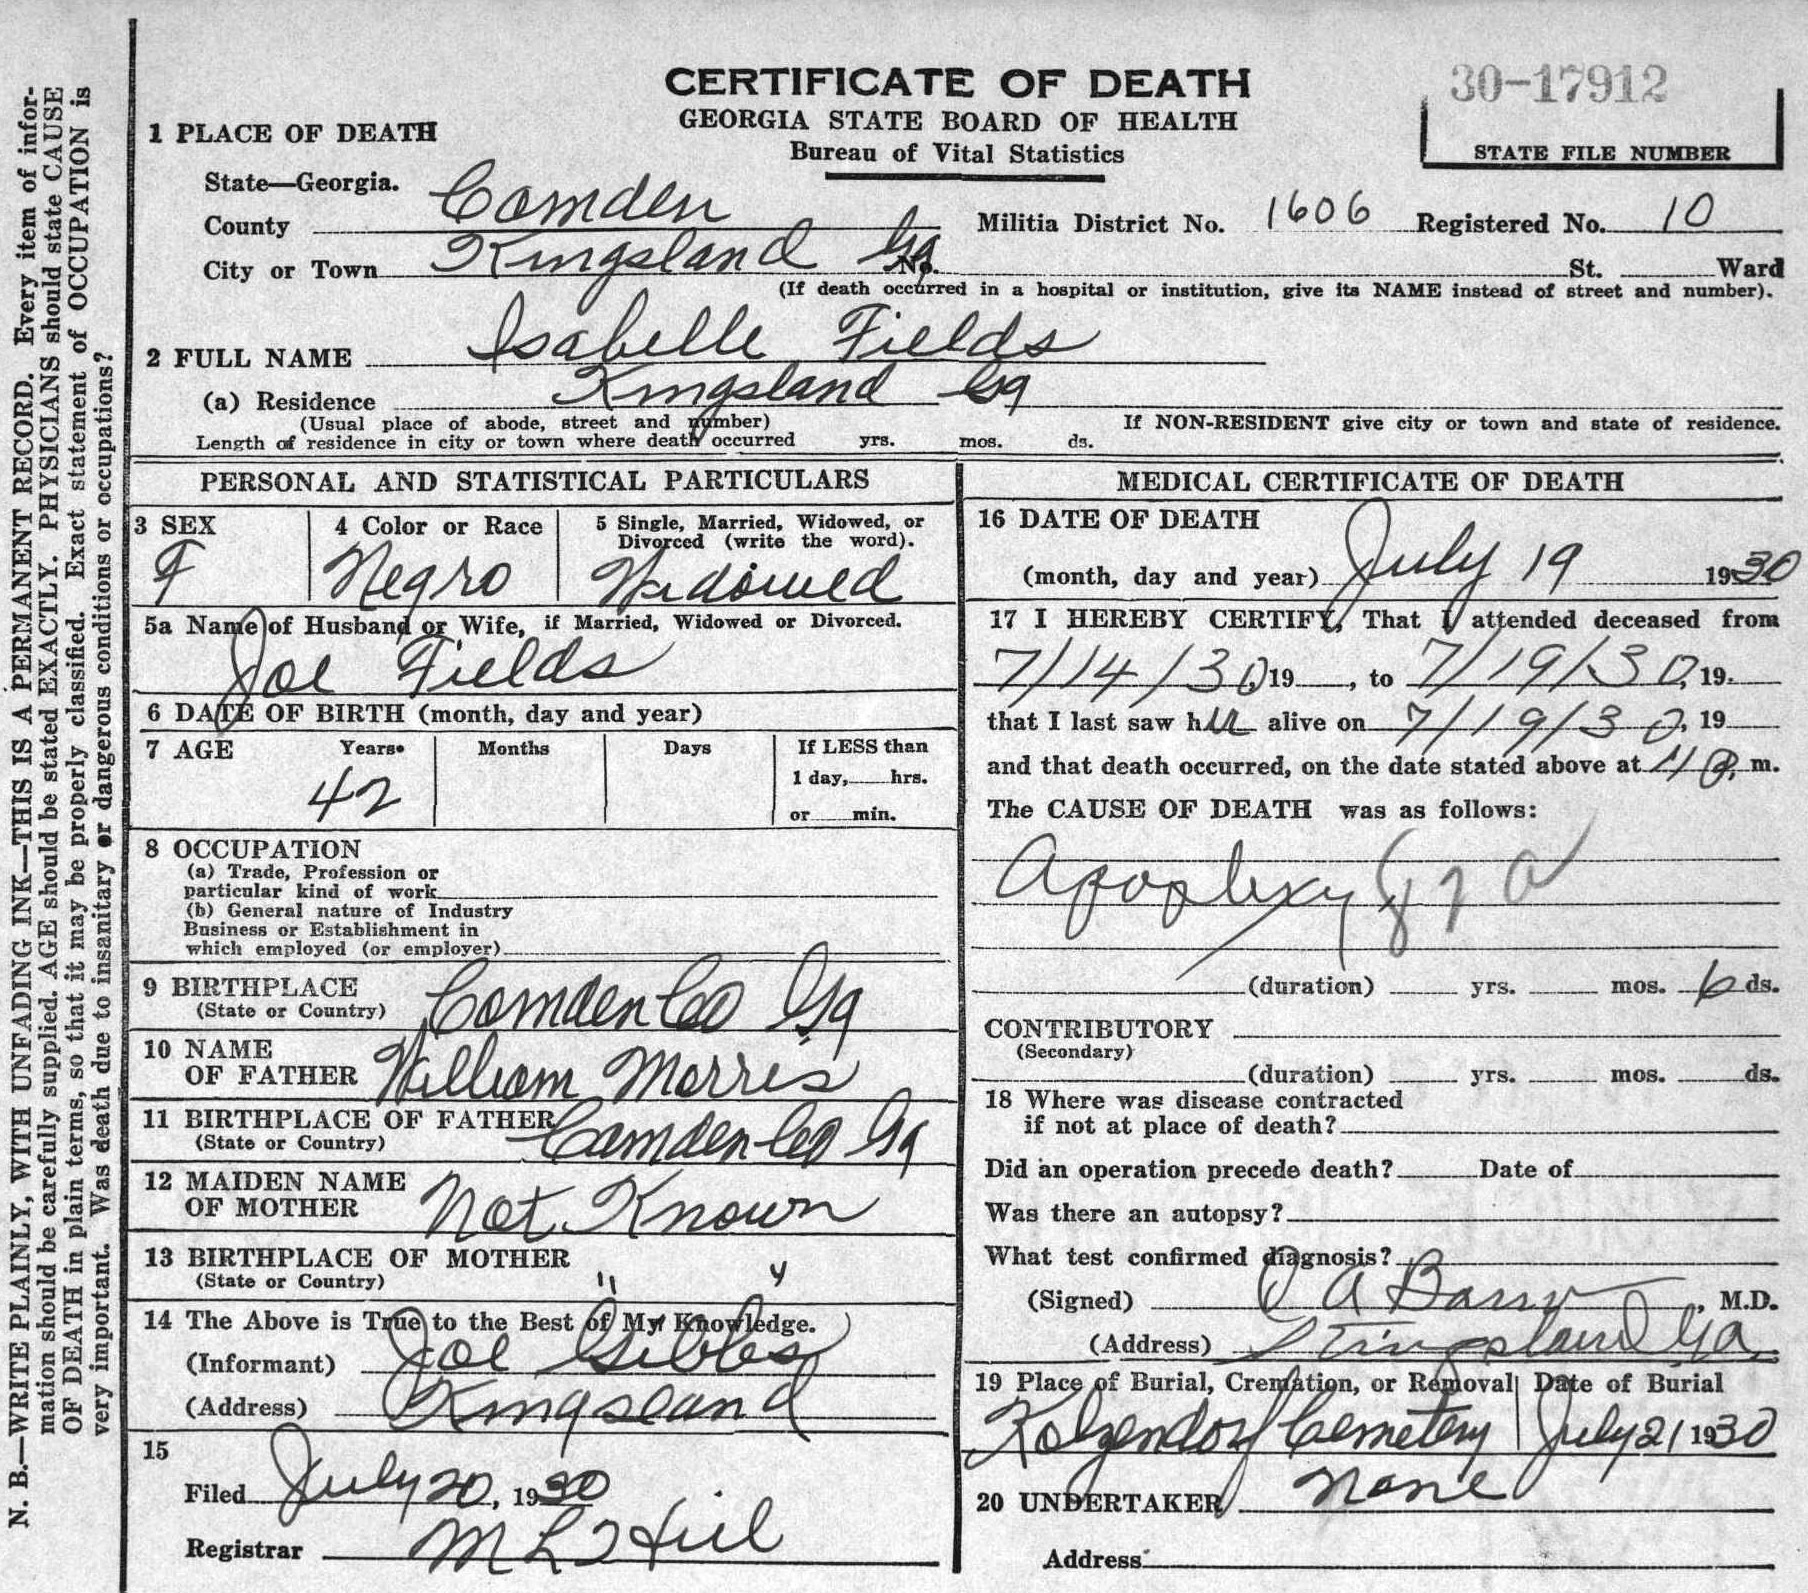 CERTIFICATE OF DEATH
GEORGIA STATE BOARD OF HEALTH
Bureau of Vital Statistics
30-17912
STATE FILE NUMBER
1 PLACE OF DEATH
State—Georgia.
County Camden Militia District No. 1606 Registered No. 10
City or Town Kingsland Ga No. St. Ward
(If death occurred in a hospital or institution, give its NAME instead of street and number).
2 FULL NAME Isabelle Fields
(a) Residence Kingsland Ga
(Usual place of abode, street and number) If NON-RESIDENT give city or town and state of residence.
Length of residence in city or town where death occurred yrs. mos. ds.
PERSONAL AND STATISTICAL PARTICULARS
3 SEX 4 Color or Race 5 Single, Married, Widowed, or
Divorced (write the word).
F Negro Widowed
5a Name of Husband or Wife, if Married, Widowed or Divorced.
Joe Fields
6 DATE OF BIRTH (month, day and year)
7 AGE Years Months Days If LESS than
42 1 day, hrs.
or min.
8 OCCUPATION
(a) Trade, Profession or
particular kind of work
(b) General nature of Industry
Business or Establishment in
which employed (or employer)
9 BIRTHPLACE Camden Co Ga
(State or Country)
10 NAME
OF FATHER William Morris
11 BIRTHPLACE OF FATHER Camden Co Ga
(State or Country)
12 MAIDEN NAME
OF MOTHER Not Known
13 BIRTHPLACE OF MOTHER
(State or Country) " "
14 The Above is True to the Best of My Knowledge.
(Informant) Joe Gibbs
(Address) Kingsland
15
Filed July 20, 1930
Registrar M L Hill
MEDICAL CERTIFICATE OF DEATH
16 DATE OF DEATH
(month, day and year) July 19 1930
17 I HEREBY CERTIFY, That I attended deceased from
7/14/30, 19 , to 7/19/30, 19
that I last saw her alive on 7/19/30, 19
and that death occurred, on the date stated above at m.
The CAUSE OF DEATH was as follows:
Apoplexy 82a
(duration) yrs. mos. 6 ds.
CONTRIBUTORY
(Secondary)
(duration) yrs. mos. ds.
18 Where was disease contracted
if not at place of death?
Did an operation precede death? Date of
Was there an autopsy?
What test confirmed diagnosis?
(Signed) A , M.D.
(Address) Kingsland Ga
19 Place of Burial, Cremation, or Removal Date of Burial
Cemetery July 21 1930
20 UNDERTAKER None
Address
N. B.—WRITE PLAINLY, WITH UNFADING INK—THIS IS A PERMANENT RECORD. Every item of infor-
mation should be carefully supplied. AGE should be stated EXACTLY. PHYSICIANS should state CAUSE
OF DEATH in plain terms, so that it may be properly classified. Exact statement of OCCUPATION is
very important. Was death due to insanitary or dangerous conditions or occupations?